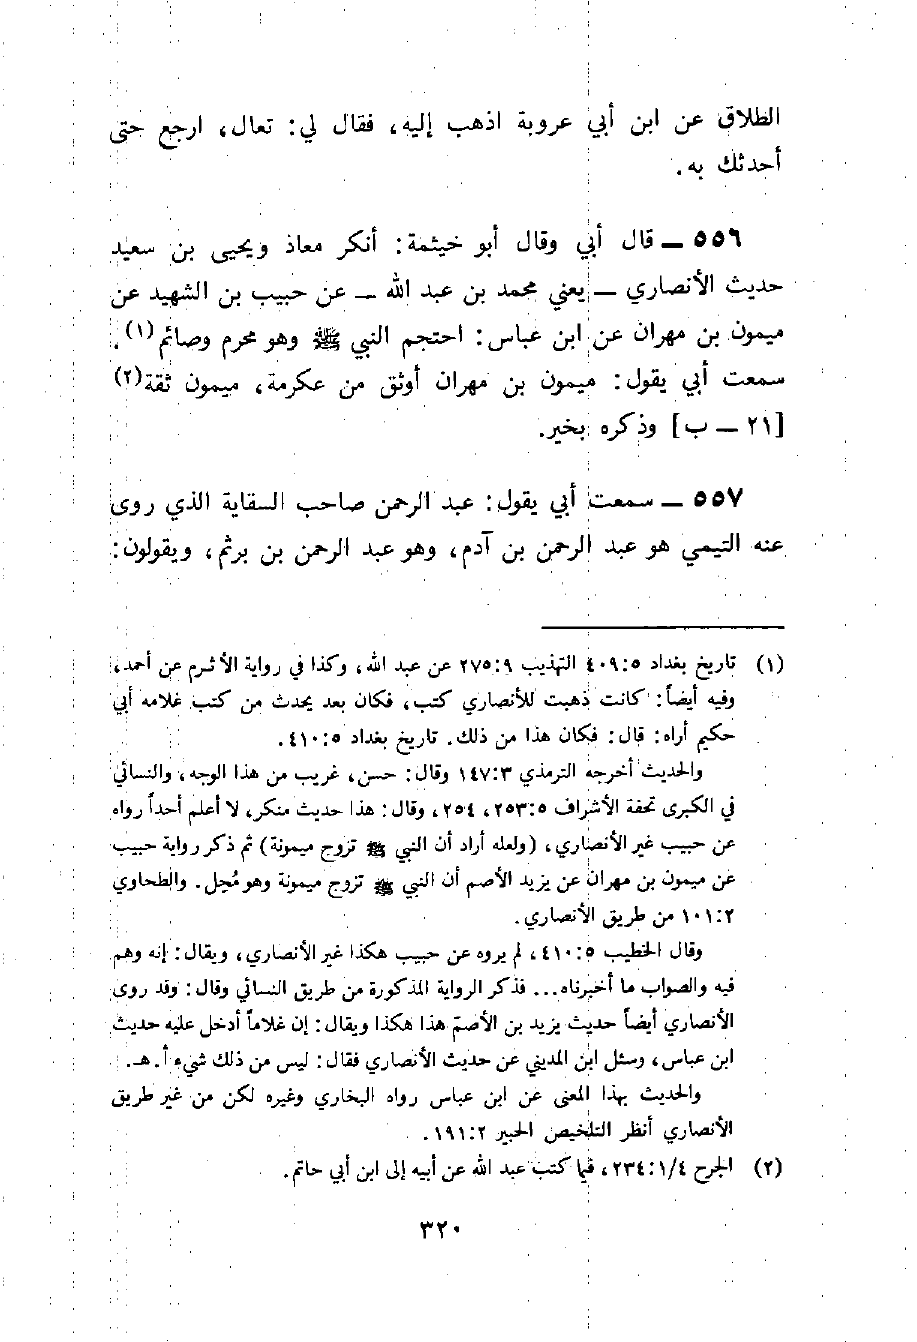 الطلاق عن ابن أبي عروبة اذهب إليه، فقال لي: تعال، ارجع حتى
أحدثك به.
٥٥٦ ــ قال أبي وقال أبو خيثمة: أنكر معاذ ويحيى بن سعيد
حديث الأنصاري ــ يعني محمد بن عبد الله ــ عن حبيب بن الشهيد عن
ميمون بن مهران عن ابن عباس: احتجم النبي ﷺ وهو محرم وصائم(١).
سمعت أبي يقول: ميمون بن مهران أوثق من عكرمة، ميمون ثقة(٢)
[٢١ ــ ب] وذكره بخير.
٥٥٧ ــ سمعت أبي يقول: عبد الرحمن صاحب السقاية الذي روى
عنه التيمي هو عبد الرحمن بن آدم، وهو عبد الرحمن بن برثم، ويقولون:
(١) تاريخ بغداد ٤٠٩:٥ التهذيب ٢٧٥:٩ عن عبد الله، وكذا في رواية الأثرم عن أحمد،
وفيه أيضاً: كانت ذهبت للأنصاري كتب، فكان بعد يحدث من كتب غلامه أبي
حكيم أراه: قال: فكان هذا من ذلك. تاريخ بغداد ٤١٠:٥.
والحديث أخرجه الترمذي ١٤٧:٣ وقال: حسن، غريب من هذا الوجه، والنسائي
في الكبرى تحفة الأشراف ٢٥٣:٥، ٢٥٤، وقال: هذا حديث منكر، لا أعلم أحداً رواه
عن حبيب غير الأنصاري، (ولعله أراد أن النبي ﷺ تزوج ميمونة) ثم ذكر رواية حبيب
عن ميمون بن مهران عن يزيد الأصم أن النبي ﷺ تزوج ميمونة وهو مُحِل. والطحاوي
١٠١:٢ من طريق الأنصاري.
وقال الخطيب ٤١٠:٥، لم يروه عن حبيب هكذا غير الأنصاري، ويقال: إنه وهم
فيه والصواب ما أخبرناه... فذكر الرواية المذكورة من طريق النسائي وقال: وقد روى
الأنصاري أيضاً حديث يزيد بن الأصمّ هذا هكذا ويقال: إن غلاماً أدخل عليه حديث
ابن عباس، وسئل ابن المديني عن حديث الأنصاري فقال: ليس من ذلك شيء أ.هـ.
والحديث بهذا المعنى عن ابن عباس رواه البخاري وغيره لكن من غير طريق
الأنصاري أنظر التلخيص الحبير ١٩١:٢.
(٢) الجرح ٢٣٤:١/٤، فيما كتب عبد الله عن أبيه إلى ابن أبي حاتم.
٣٢٠